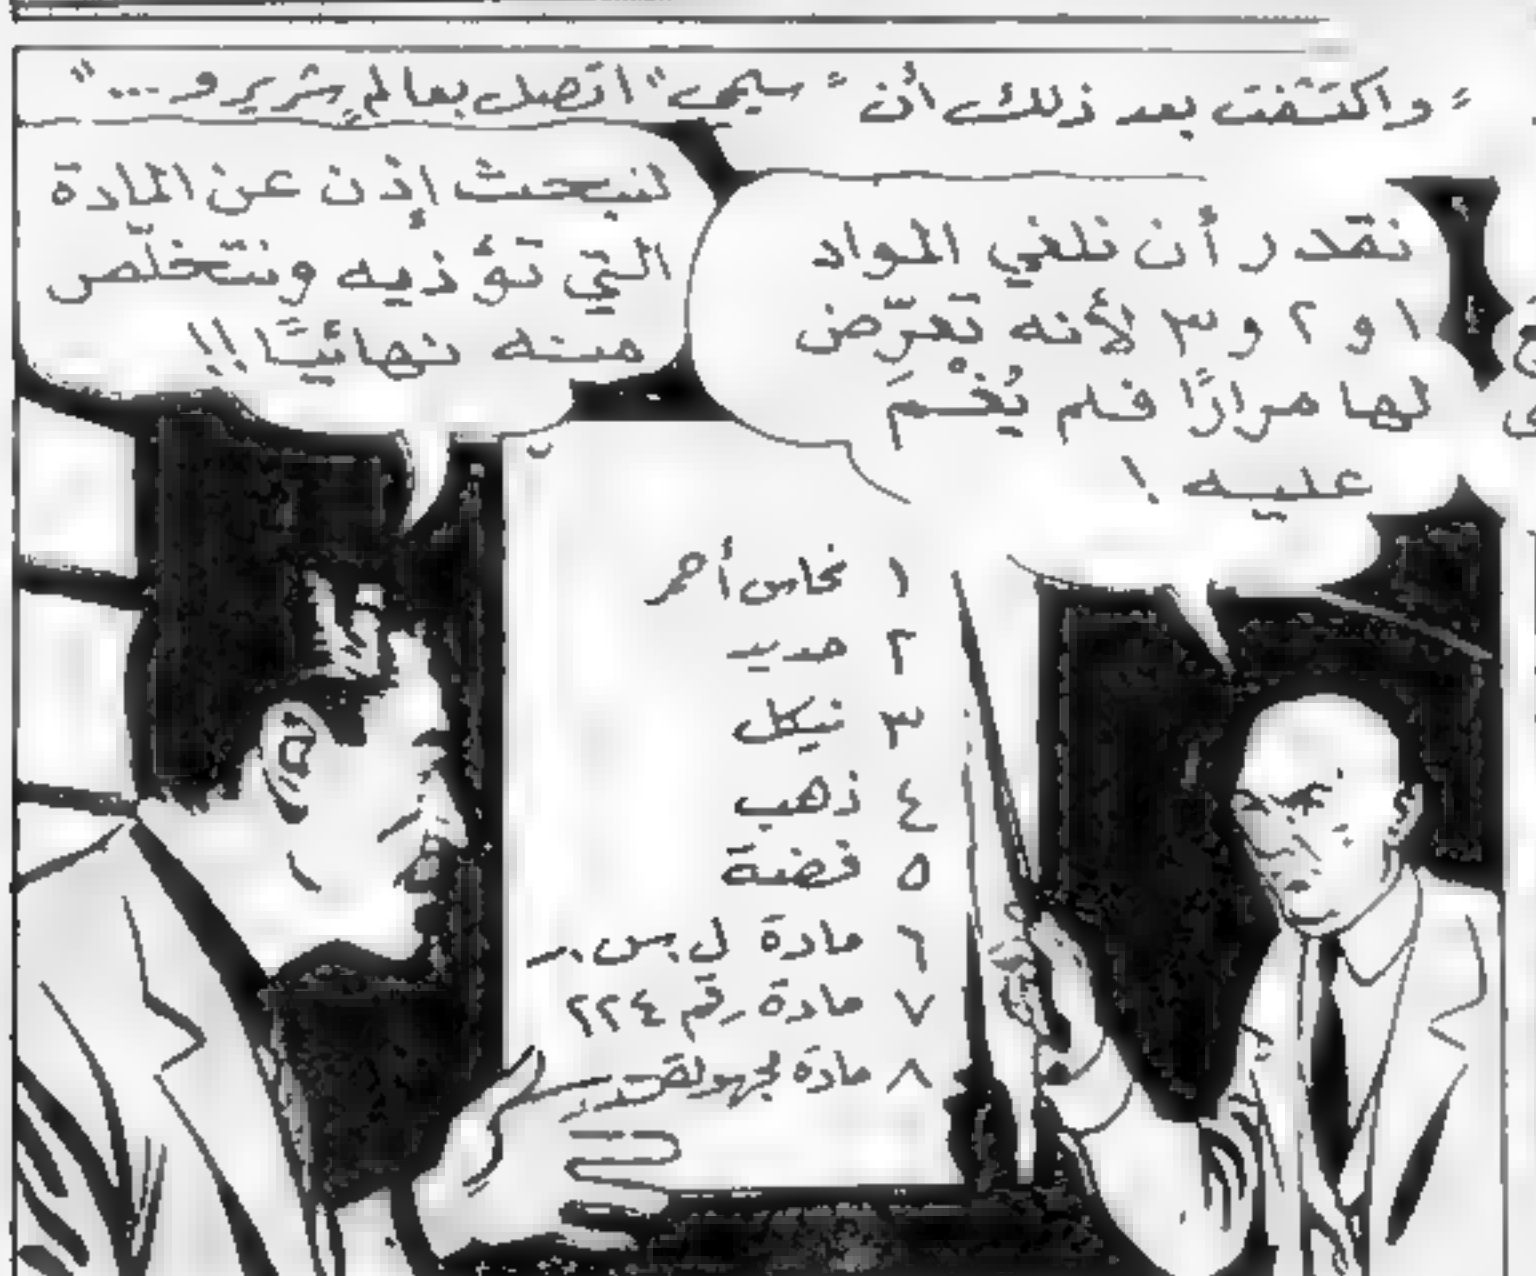 "واكتشفت بعد ذلك أن "سيمى" اتصل بعالم شرير و..."
نقدر أن نلغي المواد
١ و ٢ و ٣ لأنه تعرّض
لها مرارًا فلم يُغْمَ
عليه !
لنبحث إذن عن المادة
التي تؤذيه ونتخلّص
منه نهائيًا !!
١ نحاس أحمر
٢ حديد
٣ نيكل
٤ ذهب
٥ فضة
٦ مادة ل . س .
٧ مادة رقم ٢٢٤
٨ مادة مجهولة